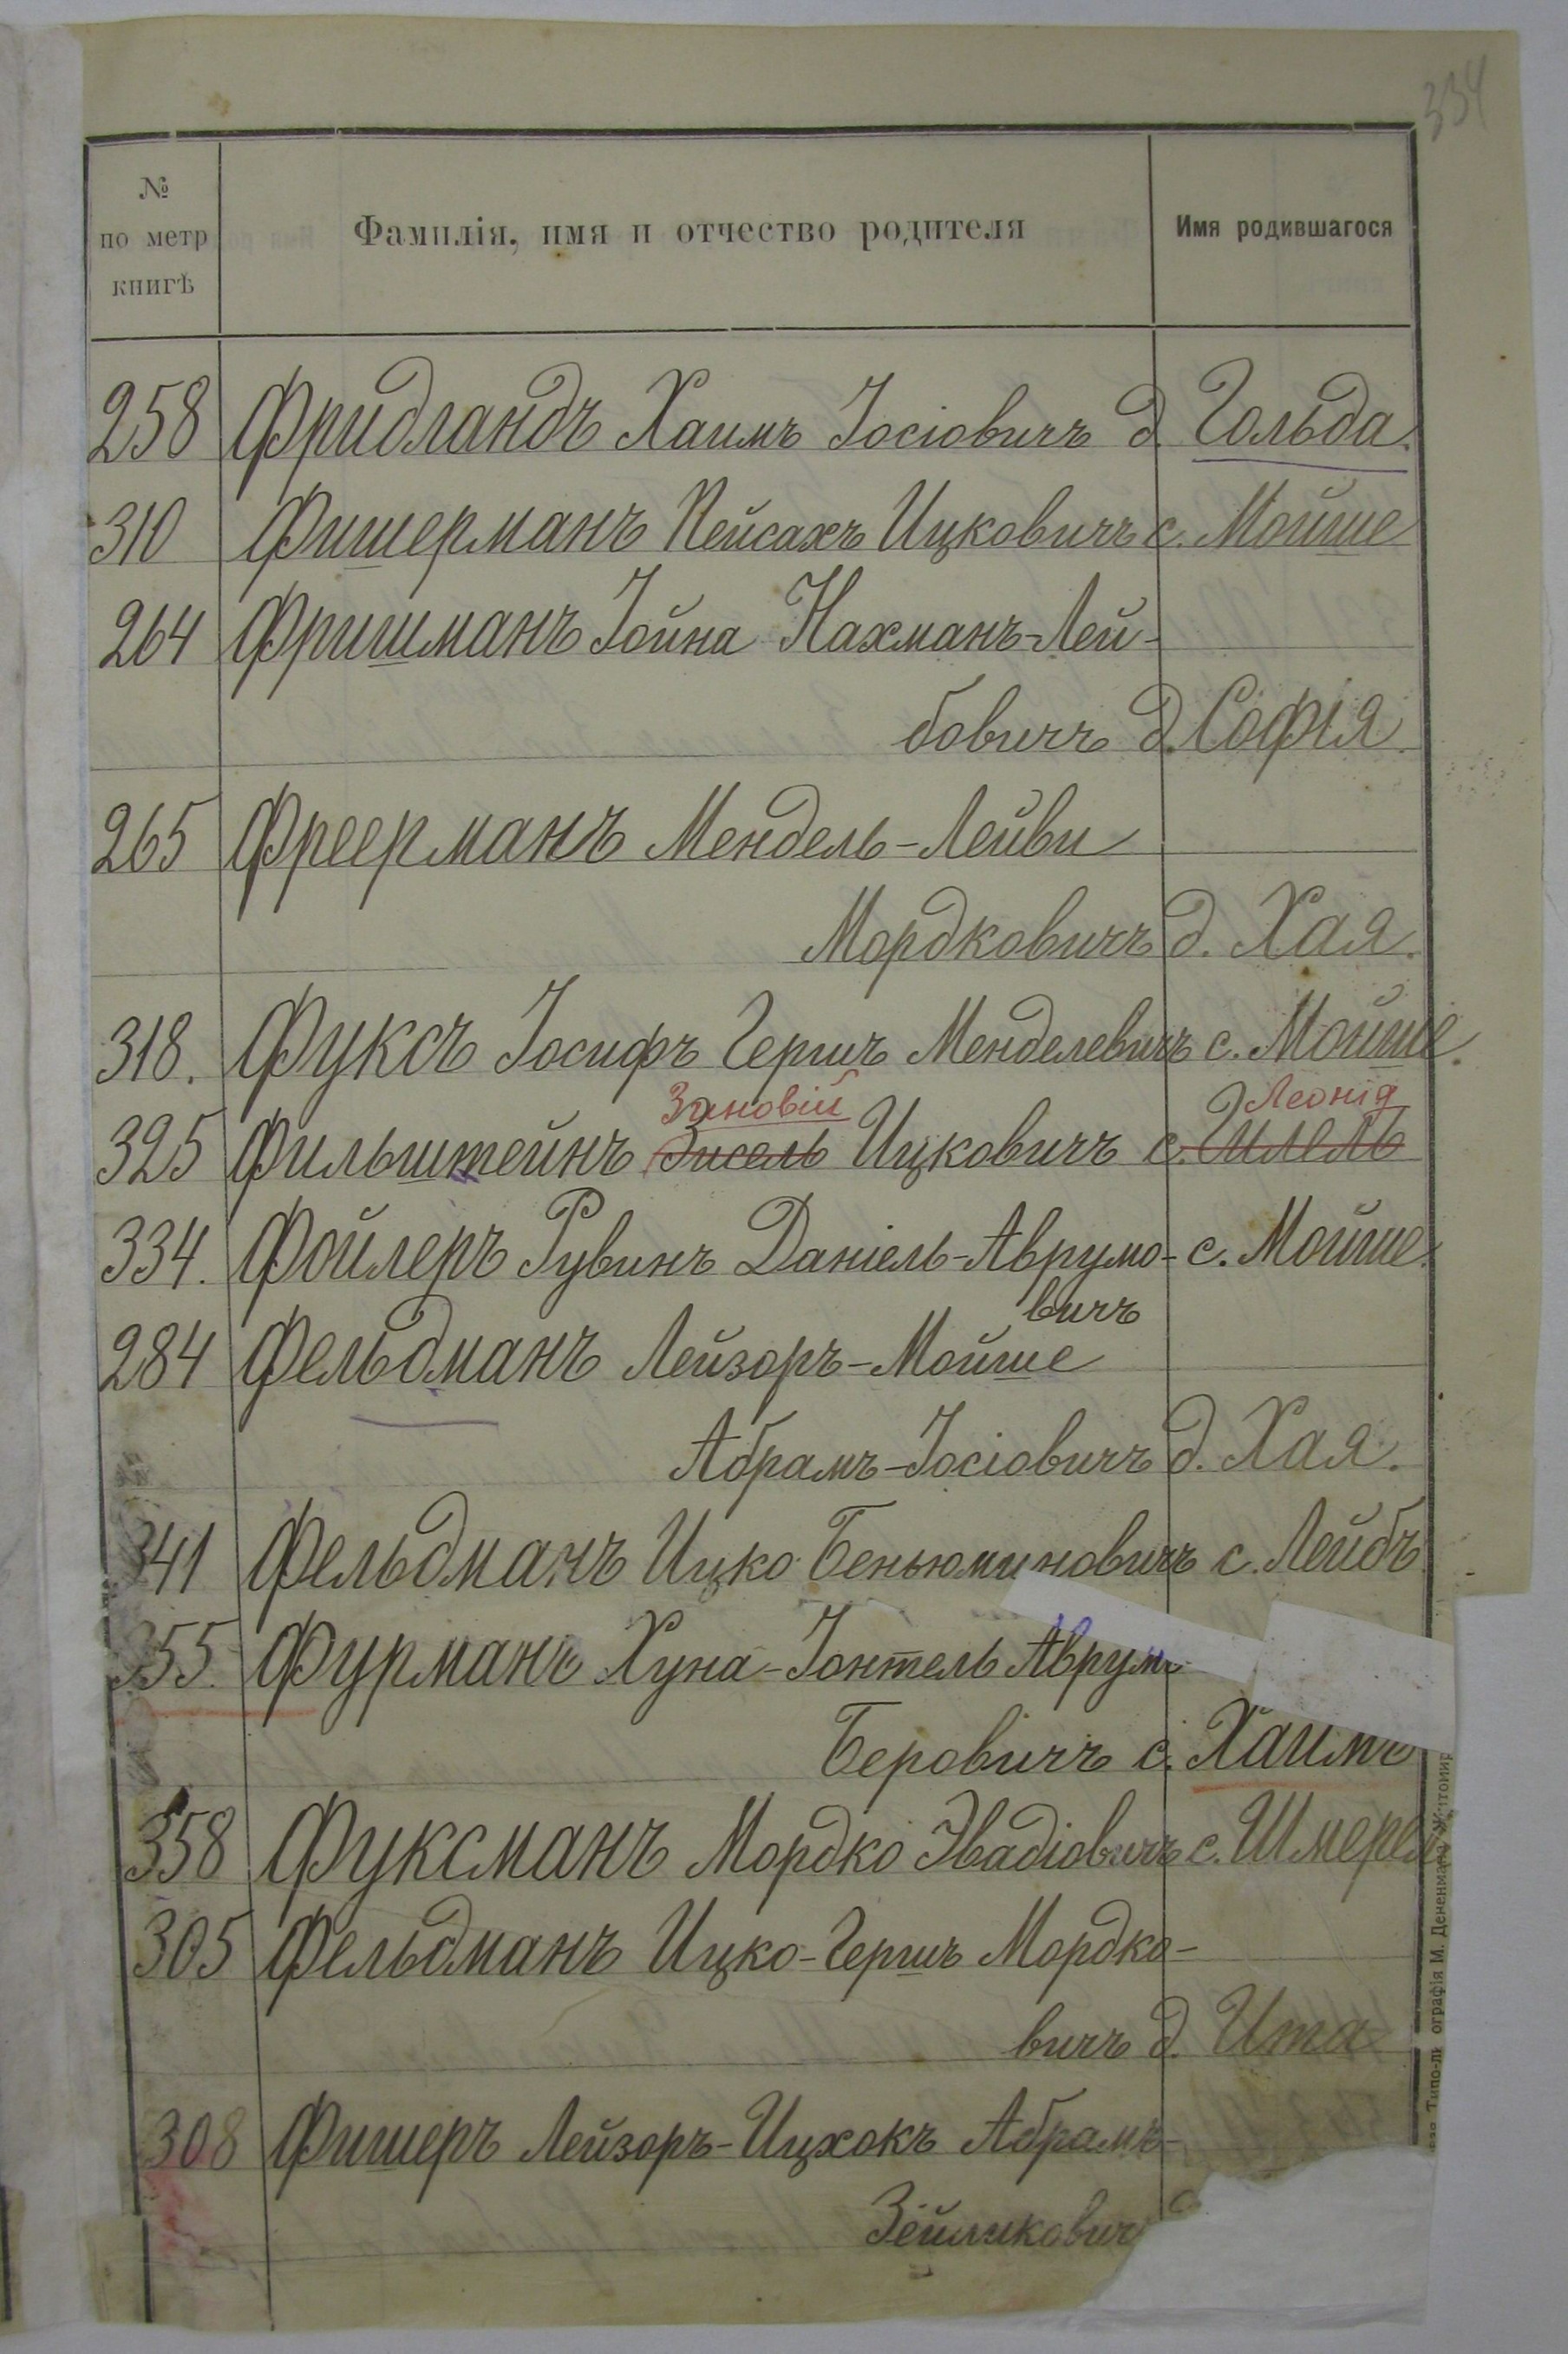 334
№
по метр
книгѣ
Фамилія, имя и отчество родителя
Имя родившагося
258 Фридландъ Хаимъ Іосіовичъ д. Гольда.
310 Фишерманъ Пейсахъ Ицковичъ с. Мойше
264 Фришманъ Іойна Нахманъ-Лей-
бовичъ д. Софія.
265 Фреерманъ Мендель-Лейви
Мордковичъ д. Хая.
318. Фуксъ Іосифъ Гершъ Менделевичъ с. Мойше.
Зиновій Леонід
325 Фильштейнъ Зисель Ицковичъ с. Гилель
334. Фойлеръ Рувинъ Даніель-Аврумо- с. Мойше.
вичъ
284 Фельдманъ Лейзоръ-Мойше
Абрамъ-Іосіовичъ д. Хая.
341 Фельдманъ Ицко Беньюминовичъ с. Лейбъ
355. Фурманъ Хуна-Іонтель Аврумъ
Беровичъ с. Хаимъ
358 Фуксманъ Мордко Эвадіовичъ с. Шмерел
305 Фельдманъ Ицко-Гершъ Мордко-
вичъ д. Ита
308 Фишеръ Лейзоръ-Ицхокъ Абрамъ-
Зейликович с
Типо-ли ографія М. Дененмана Житомир